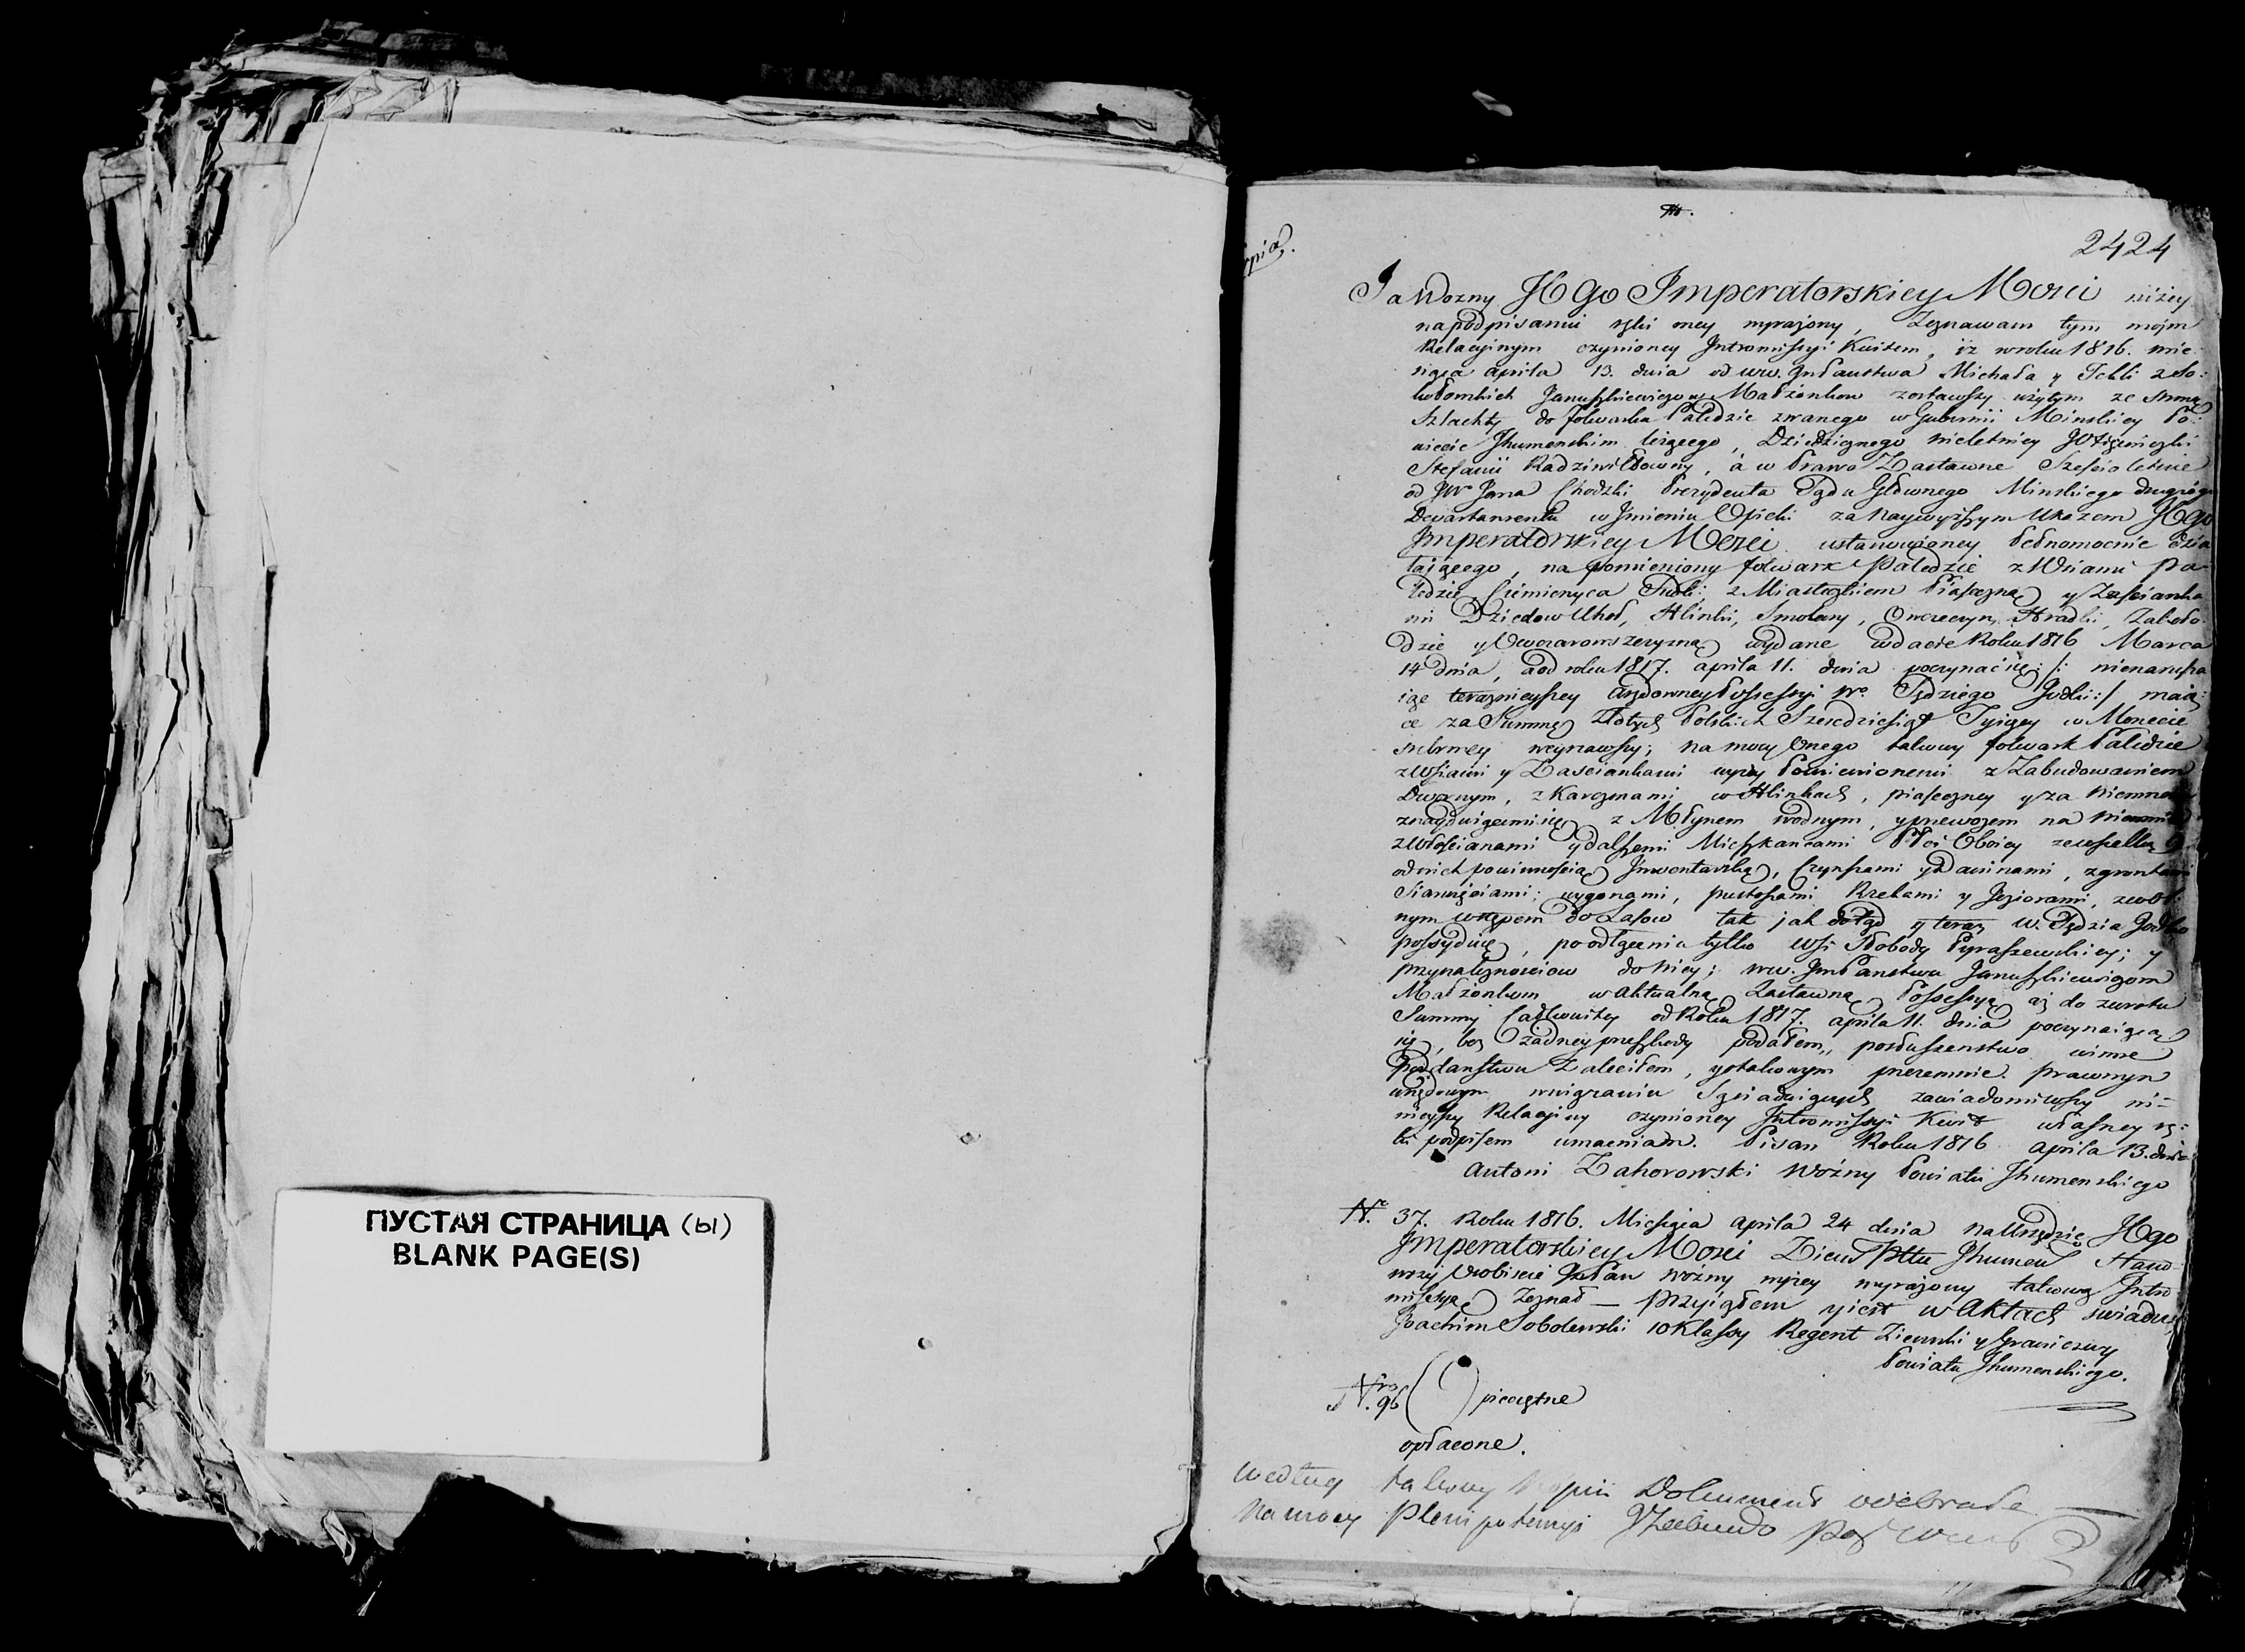 ПУСТАЯ СТРАНИЦА (ы)
BLANK PAGE(S)
2424
Ja Wozny JEgo Imperatorskiey Mości niżey
na podpisaniu ręki mey wyrażony, Zeznawam tym mojm
Relacyinym czynioney Intromissyi Kwitem, iż w roku 1816. mie-
siąca apryla 13. dnia od WW. Państwa Michała y Tekli z So:
Januszkiewiczow Małżonkow zostawszy użytym ze stroną
Szlachty do folwarku Paledzie zwanego w Gubernii Minskiey Po:
wiecie Jhumenskim leżącego, Dziedzicznego nieletniey
Stefanii Radziwiłłowny, a w Prawo Zastawne Sześcioletnie
od JW Jana Chodźki Prezydenta Sądu Głównego Minskiego drugiego
Departamentu w Jmieniu Opieki za Naywyższym Ukazem JEgo
Imperatorskiey Mości ustanowioney Pełnomocnie dzia
łaiącego, na pomieniony folwark Paledzie z Wsiami Pa-
ledzie, z Miasteczkiem Piaseczną y Zaścianka
mi Dziedow Uhoł, Hlinki, Smolary, Hradki, Zabło
dzie y wydane w dacie Roku 1816 Marca
14 dnia, a od roku 1817. apryla 11. dnia poczynać się :/: nienarusza
iąc teraznieyszey Possessyi W. Sędziego Jodki :/ maią:
ce za Summę Złotych Polskich Sześćdziesiąt Tysięcy w Monecie
srebrney; na mocy Onego takowy folwark Paledzie
z Wsiami y Zasciankami wyżey Pomienionemi z Zabudowaniem
Dwornym, z Karczmami w Hlinkach, piaseczney y za Niemnem
znayduiącemi się, z Młynem wodnym, y przewozem na Niemnie
z Włościanami y dalszemi Mieszkańcami Płci Oboiey ze wszelką
od nich powinnością Jnwentarską, Czynszami y Daninami, z gruntami
Sianożęciami, wygonami, pustoszami Rzekami y Jeziorami, z wol:
nym wstępem do Lasow tak jak dotąd y teraz W. Sędzia Jodko
possyduie, po odłączeniu tylko Wsi Słobody Pyraszewskiey; y
przynależnościow do niey; WW. Jm Państwu Januszkiewiczom
Małżonkom w aktualną Zastawną Possessyą aż do zwrotu
Summy całkowitey od Roku 1817. apryla 11. dnia poczynaiącą
się, bez żadney przeszkody podałem, posłuszenstwo winne
Poddanstwu Zaleciłem, y o takowym przezemnie prawnym
urzędowym zawiadomiwszy ni-
nieyszy Relacyiny czynioney Intromissyi Kwit własney rę:
ki podpisem umacniam. Pisan Roku 1816 apryla 13. dnia
Antoni Zahorowski Wozny Powiatu Jhumenskiego
Nr. 37. Roku 1816. Miesiąca apryla 24 dnia na Urzędzie JEgo
Imperatorskiey Mości Ziem: Pttu Jhumen: Stano-
wszy Osobiscie Pan Wozny wyżey wyrażony takową Intro
missyą Zeznał — przyiąłem y iest w Aktach swiadczę
Joachim Sobolewski 10 Klassy Regent Ziemski y Graniczny
Powiatu Jhumenskiego.
Nro. 96 ( ) pieczętne
opłacone.
według takowey kopii Dokument odebrałe
Na mocy Plenipotencyi